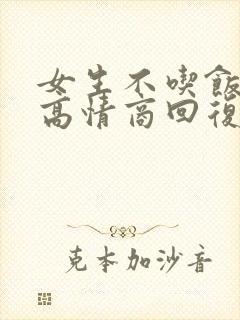 女生不喫飯
高情商回復
克本加沙音